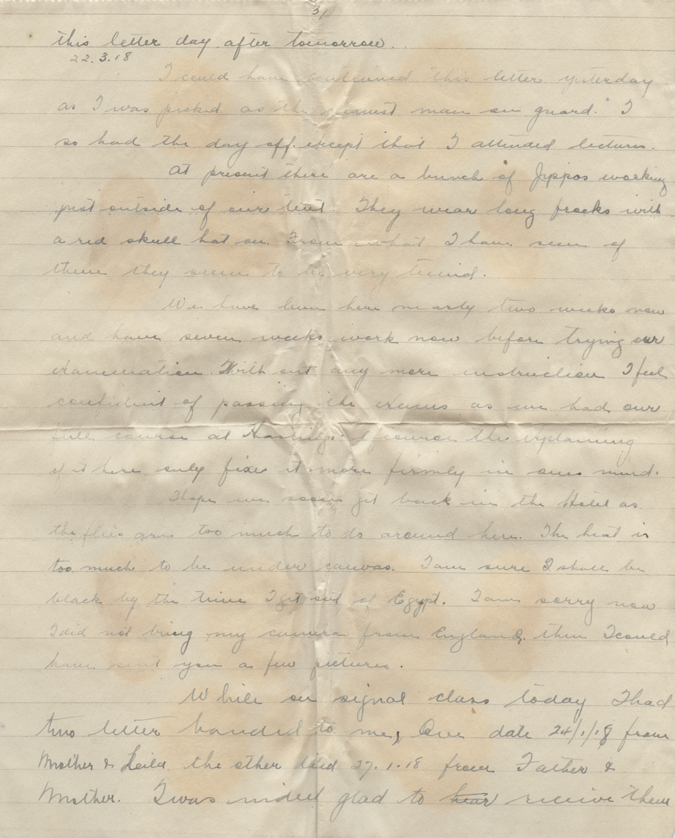 3/
this letter day after tomorrow.
22.3.18
I could have continued this letter yesterday
as I was picked as the smartest man on guard. I
so had the day off except that I attended lectures.
At present there are a bunch of Jippos working
just outside of our tent. They wear long frocks with
a red skull hat on. From what I have seen of
them they seem to be very timid.
We have been here nearly two weeks now
and have seven weeks work now before trying our
examination. With out any more instruction I feel
confident of passing the exams as we had our
full course at Hastings. Of course the explaining
of it here only fixes it more firmly in ones mind.
Hope we soon get back in the Hotel as
the flies are too much to do around here. The heat is
too much to be under canvas. I am sure I shall be
black by the time I get out of Egypt. I am sorry now
I did not bring my camera from England, then I could
have sent you a few pictures.
While on signal class today I had
two letter handed to me, One date 24/1/18 from
Mother & Leila the other dated 27.1.18 from Father &
Mother. I was indeed glad to hear receive them